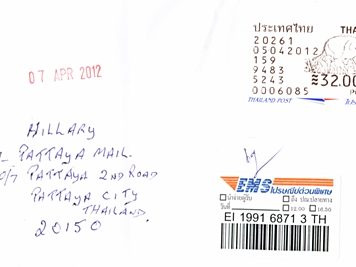 ประเทศไทย THA
20261
05042012
159
9483
5243 ≋32.00
0006085
THAILAND POST
07 APR 2012
HILLARY
PATTAYA MAIL
PATTAYA 2ND ROAD
PATTAYA CITY
THAILAND
20150
EMS ไปรษณีย์ด่วนพิเศษ
วันที่ 12.00 16.30
EI 1991 6871 3 TH